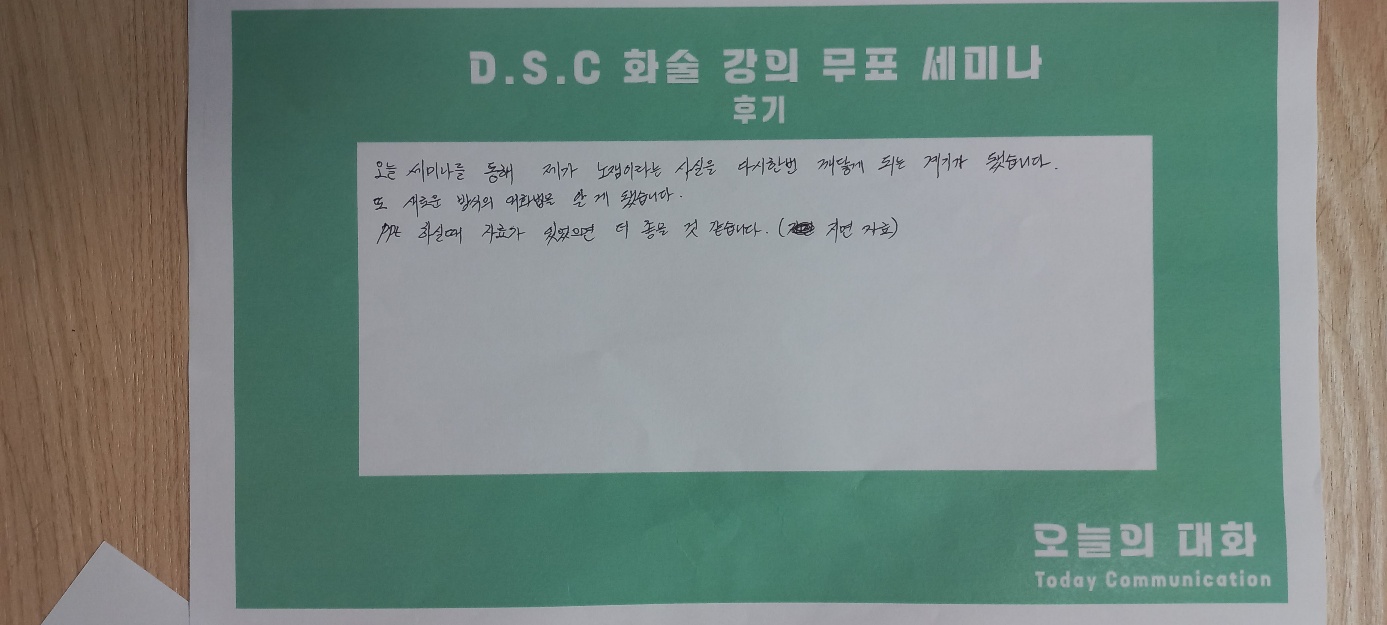 D.S.C 화술 강의 무표 세미나
후기
오늘 세미나를 통해 제가 노잼이라는 사실을 다시한번 깨닫게 되는 계기가 됐습니다.
또 새로운 방식의 대화법을 알게 됐습니다.
하실때 자료가 있었으면 더 좋을 것 같습니다. ( 지면 자료)
오늘의 대화
Today Communication